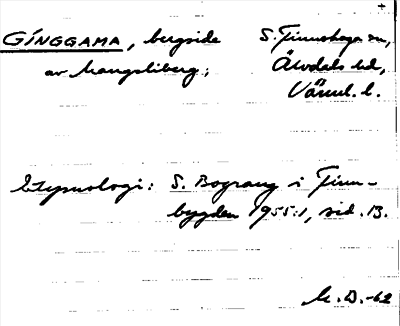 +
GÍNGGAMA, bergside S. Finnskoga sn,
av Mangsliberg; Älvdals hd,
Värml. l.
Etymologi: S. Bograng i Finn-
bygden 1955:1, sid. 13.
M. D. -62